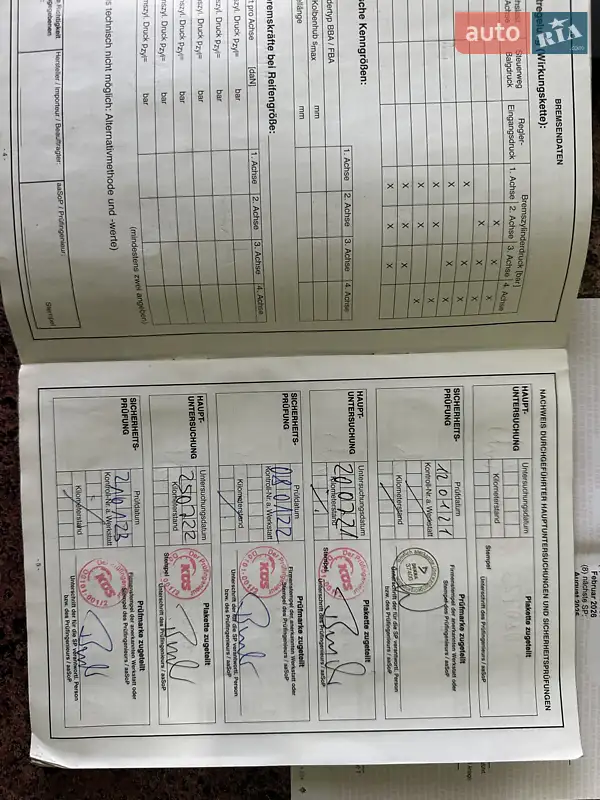 auto RIA.com
BREMSENDATEN
Wirkungskette):
Steuerweg
Balgdruck
Regler-
Eingangsdruck
Bremszylinderdruck [bar]
1. Achse 2. Achse 3. Achse 4. Achse
x x x
x x
x x
x x
x x x
x x x
x x x
ische Kenngrößen:
dertyp BBA / FBA
Kolbenhub smax mm
ellänge mm
1. Achse 2. Achse 3. Achse 4. Achse
remskräfte bei Reifengröße:
t pro Achse [daN]
1. Achse 2. Achse 3. Achse 4. Achse
nszyl. Druck pzyl= bar
nszyl. Druck pzyl= bar
nszyl. Druck pzyl= bar
nszyl. Druck pzyl= bar
nszyl. Druck pzyl= bar
(mindestens zwei angeben)
s technisch nicht möglich: Alternativmethode und -werte)
Hersteller / Importeur / Beauftragter:
aaSoP / Prüfingenieur:
Stempel
- 4 -
NACHWEIS DURCHGEFÜHRTER HAUPTUNTERSUCHUNGEN UND SICHERHEITSPRÜFUNGEN
HAUPT-
UNTERSUCHUNG
Untersuchungsdatum
Kilometerstand
Plakette zugeteilt
Stempel
Unterschrift des Prüfingenieurs / aaSoP
SICHERHEITS-
PRÜFUNG
Prüfdatum
120121
Kontroll-Nr. a. Werkstatt
Kilometerstand
Prüfmarke zugeteilt
Firmenstempel der anerkannten Werkstatt oder
Stempel des Prüfingenieurs / aaSoP
Unterschrift der für die SP verantwortl. Person
bzw. des Prüfingenieurs / aaSoP
HAUPT-
UNTERSUCHUNG
Untersuchungsdatum
200721
Kilometerstand
Plakette zugeteilt
Stempel
Unterschrift des Prüfingenieurs / aaSoP
SICHERHEITS-
PRÜFUNG
Prüfdatum
080122
Kontroll-Nr. a. Werkstatt
Kilometerstand
Prüfmarke zugeteilt
Firmenstempel der anerkannten Werkstatt oder
Stempel des Prüfingenieurs / aaSoP
KÜS
Unterschrift der für die SP verantwortl. Person
bzw. des Prüfingenieurs / aaSoP
HAUPT-
UNTERSUCHUNG
Untersuchungsdatum
250722
Kilometerstand
Plakette zugeteilt
Stempel
KÜS
Unterschrift des Prüfingenieurs / aaSoP
SICHERHEITS-
PRÜFUNG
Prüfdatum
Kontroll-Nr. a. Werkstatt
Kilometerstand
Prüfmarke zugeteilt
Firmenstempel der anerkannten Werkstatt oder
Stempel des Prüfingenieurs / aaSoP
KÜS
Unterschrift der für die SP verantwortl. Person
bzw. des Prüfingenieurs / aaSoP
- 5 -
Februar 2026
(8) nächste SP
August 2025